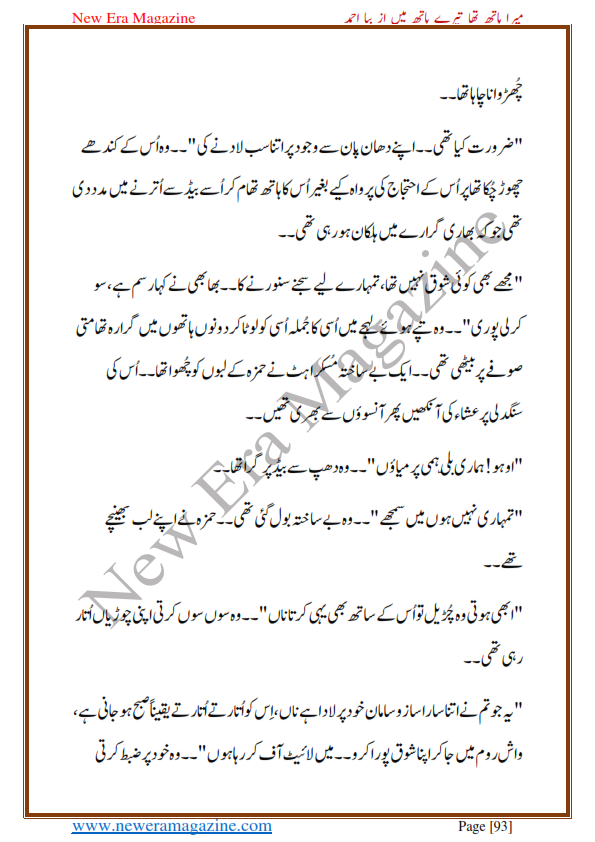 New Era Magazine میرا ہاتھ تھا تیرے ہاتھ میں از ببا احمد
چُھڑوانا چاہا تھا۔۔
"ضرورت کیا تھی۔۔ اپنے دھان پان سے وجود پر اتنا سب لادنے کی"۔۔ وہ اُس کے کندھے
چھوڑ چُکا تھا پر اُس کے احتجاج کی پرواہ کیے بغیر اُس کا ہاتھ تھام کر اُسے بیڈ سے اُترنے میں مدد دی
تھی جو کہ بھاری گرارے میں ہلکان ہو رہی تھی۔۔
"مجھے بھی کوئی شوق نہیں تھا، تمہارے لیے سجنے سنورنے کا۔۔ بھابھی نے کہا رسم ہے، سو
کر لی پوری"۔۔ وہ تپے ہوئے لہجے میں اُسی کا جُملہ اُسی کو لوٹا کر دونوں ہاتھوں میں گرارہ تھامتی
صوفے پر بیٹھی تھی۔۔ ایک بے ساختہ مُسکراہٹ نے حمزہ کے لبوں کو چُھوا تھا۔۔ اُس کی
سنگدلی پر عشاء کی آنکھیں پھر آنسوؤں سے بھری تھیں۔۔
"اوہو! ہماری بلی ہمی پر میاؤں"۔۔ وہ دھپ سے بیڈ پر گرا تھا۔۔
"تمہاری نہیں ہوں میں سمجھے"۔۔ وہ بے ساختہ بول گئی تھی۔۔ حمزہ نے اپنے لب بھینچے
تھے۔۔
"ابھی ہوتی وہ چُڑیل تو اُس کے ساتھ بھی یہی کرتا ناں"۔۔ وہ سوں سوں کرتی اپنی چوڑیاں اُتار
رہی تھی۔۔
"یہ جو تم نے اتنا سارا ساز و سامان خود پر لادا ہے ناں، اِس کو اُتارتے اُتارتے یقیناً صبح ہو جانی ہے،
واش روم میں جا کر اپنا شوق پورا کرو۔۔ میں لائیٹ آف کر رہا ہوں"۔۔ وہ خود پر ضبط کرتی
New Era Magazine
www.neweramagazine.com Page [93]